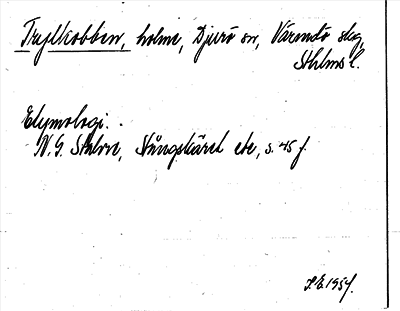 Tryllkobben, holme, Djurö sn, Värmdö skg,
Sthlms l.
Etymologi.
N. G. Stahre, Stångskäret etc, s. 45 f.
1954.